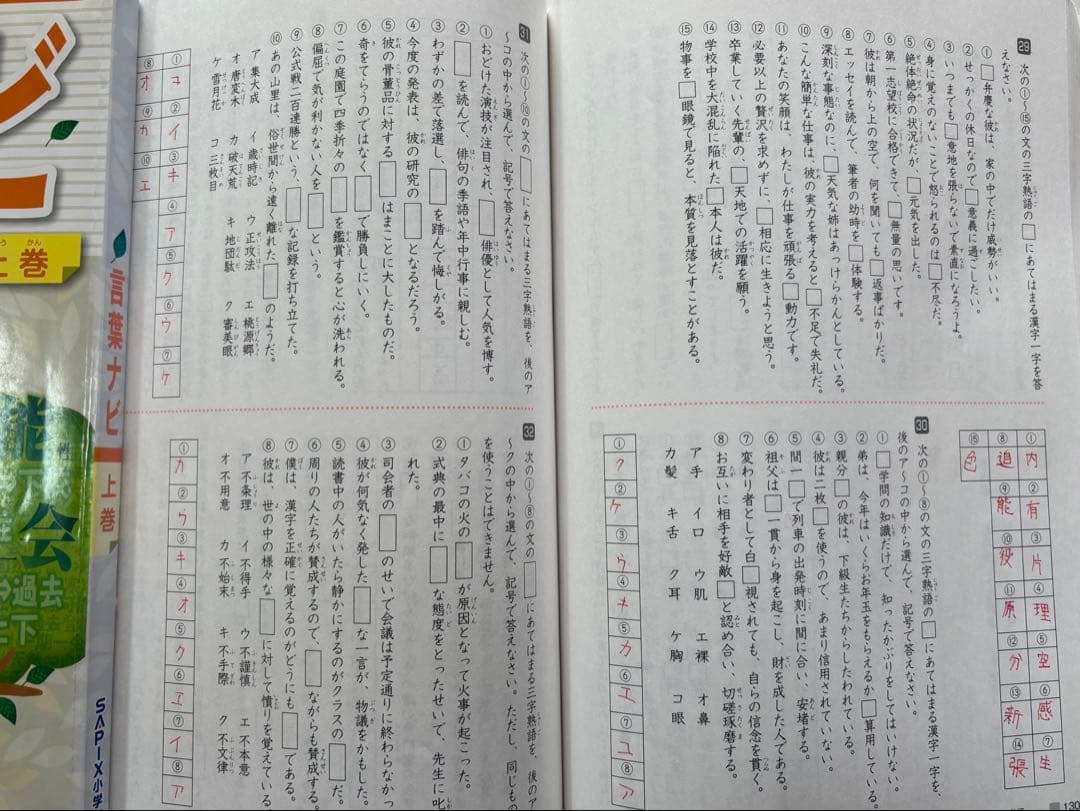 29 次の①〜⑮の文の三字熟語の□にあてはまる漢字一字を答えなさい。
①□弁慶な彼は、家の中でだけ威勢がいい。
②せっかくの休日なので□意義に過ごしたい。
③いつまでも□意地を張らないで素直になろうよ。
④身に覚えのないことで怒られるのは□不尽だ。
⑤絶体絶命の状況だが、□元気を出した。
⑥第一志望校に合格できて、□無量の思いです。
⑦彼は朝から上の空で、何を聞いても□返事ばかりだ。
⑧エッセイを読んで、筆者の幼時を□体験する。
⑨深刻な事態なのに、□天気な姉はあっけらかんとしている。
⑩こんな簡単な仕事は、彼の実力を考えると□不足で失礼だ。
⑪あなたの笑顔は、わたしが仕事を頑張る□動力です。
⑫必要以上の贅沢を求めずに、□相応に生きようと思う。
⑬卒業していく先輩の、□天地での活躍を願う。
⑭学校中を大混乱に陥れた□本人は彼だ。
⑮物事を□眼鏡で見ると、本質を見落とすことがある。
①内 ②有 ③片 ④理 ⑤空 ⑥感 ⑦生
⑧追 ⑨能 ⑩役 ⑪原 ⑫分 ⑬新 ⑭張
⑮色
30 次の①〜⑧の文の三字熟語の□にあてはまる漢字一字を、後のア〜コの中から選んで、記号で答えなさい。
①□学問の知識だけで、知ったかぶりをしてはいけない。
②弟は、今年はいくらお年玉をもらえるか□算用している。
③親分□の彼は、下級生たちからしたわれている。
④彼は二枚□を使うので、あまり信用されていない。
⑤間一□で列車の出発時刻に間に合い、安堵する。
⑥祖父は□一貫から身を起こし、財を成した人である。
⑦変わり者として白□視されても、自らの信念を貫く。
⑧お互いに相手を好敵□と認め合い、切磋琢磨する。
ア 手 イ 口 ウ 肌 エ 裸 オ 鼻
カ 髪 キ 舌 ク 耳 ケ 胸 コ 眼
①ク ②ケ ③ウ ④キ ⑤カ ⑥エ ⑦コ ⑧ア
130
31 次の①〜⑩の文の□にあてはまる三字熟語を、後のア〜コの中から選んで、記号で答えなさい。
①おどけた演技が注目され、□俳優として人気を博す。
②□を読んで、俳句の季語や年中行事に親しむ。
③わずかの差で落選し、□を踏んで悔しがる。
④今度の発表は、彼の研究の□となるだろう。
⑤彼の骨董品に対する□はまことに大したものだ。
⑥奇をてらうのではなく□で勝負しにいく。
⑦この庭園で四季折々の□を鑑賞すると心が洗われる。
⑧偏屈で気が利かない人を□という。
⑨公式戦二百連勝という、□な記録を打ち立てた。
⑩あの山里は、俗世間から遠く離れた□のようだ。
ア 集大成 イ 歳時記 ウ 正攻法 エ 桃源郷
オ 唐変木 カ 破天荒 キ 地団駄 ク 審美眼
ケ 雪月花 コ 三枚目
①コ ②イ ③キ ④ア ⑤ク ⑥ウ ⑦ケ
⑧オ ⑨カ ⑩エ
32 次の①〜⑧の文の□にあてはまる三字熟語を、後のア
〜クの中から選んで、記号で答えなさい。ただし、同じもの
を使うことはできません。
①タバコの火の□が原因となって火事が起こった。
②式典の最中に□な態度をとったせいで、先生に叱
れた。
③司会者の□のせいで会議は予定通りに終わらなかっ
④彼が何気なく発した□な一言が、物議をかもした。
⑤読書中の人がいたら静かにするのがクラスの□だ。
⑥周りの人たちが賛成するので、□ながらも賛成する。
⑦僕は、漢字を正確に覚えるのがどうにも□である。
⑧彼は、世の中の様々な□に対して憤りを覚えている。
ア 不条理 イ 不得手 ウ 不謹慎 エ 不本意
オ 不用意 カ 不始末 キ 不手際 ク 不文律
①カ ②ウ ③キ ④オ ⑤ク ⑥エ ⑦イ ⑧ア
上巻
言葉ナビ 上巻
SAPIX小学
会
過去